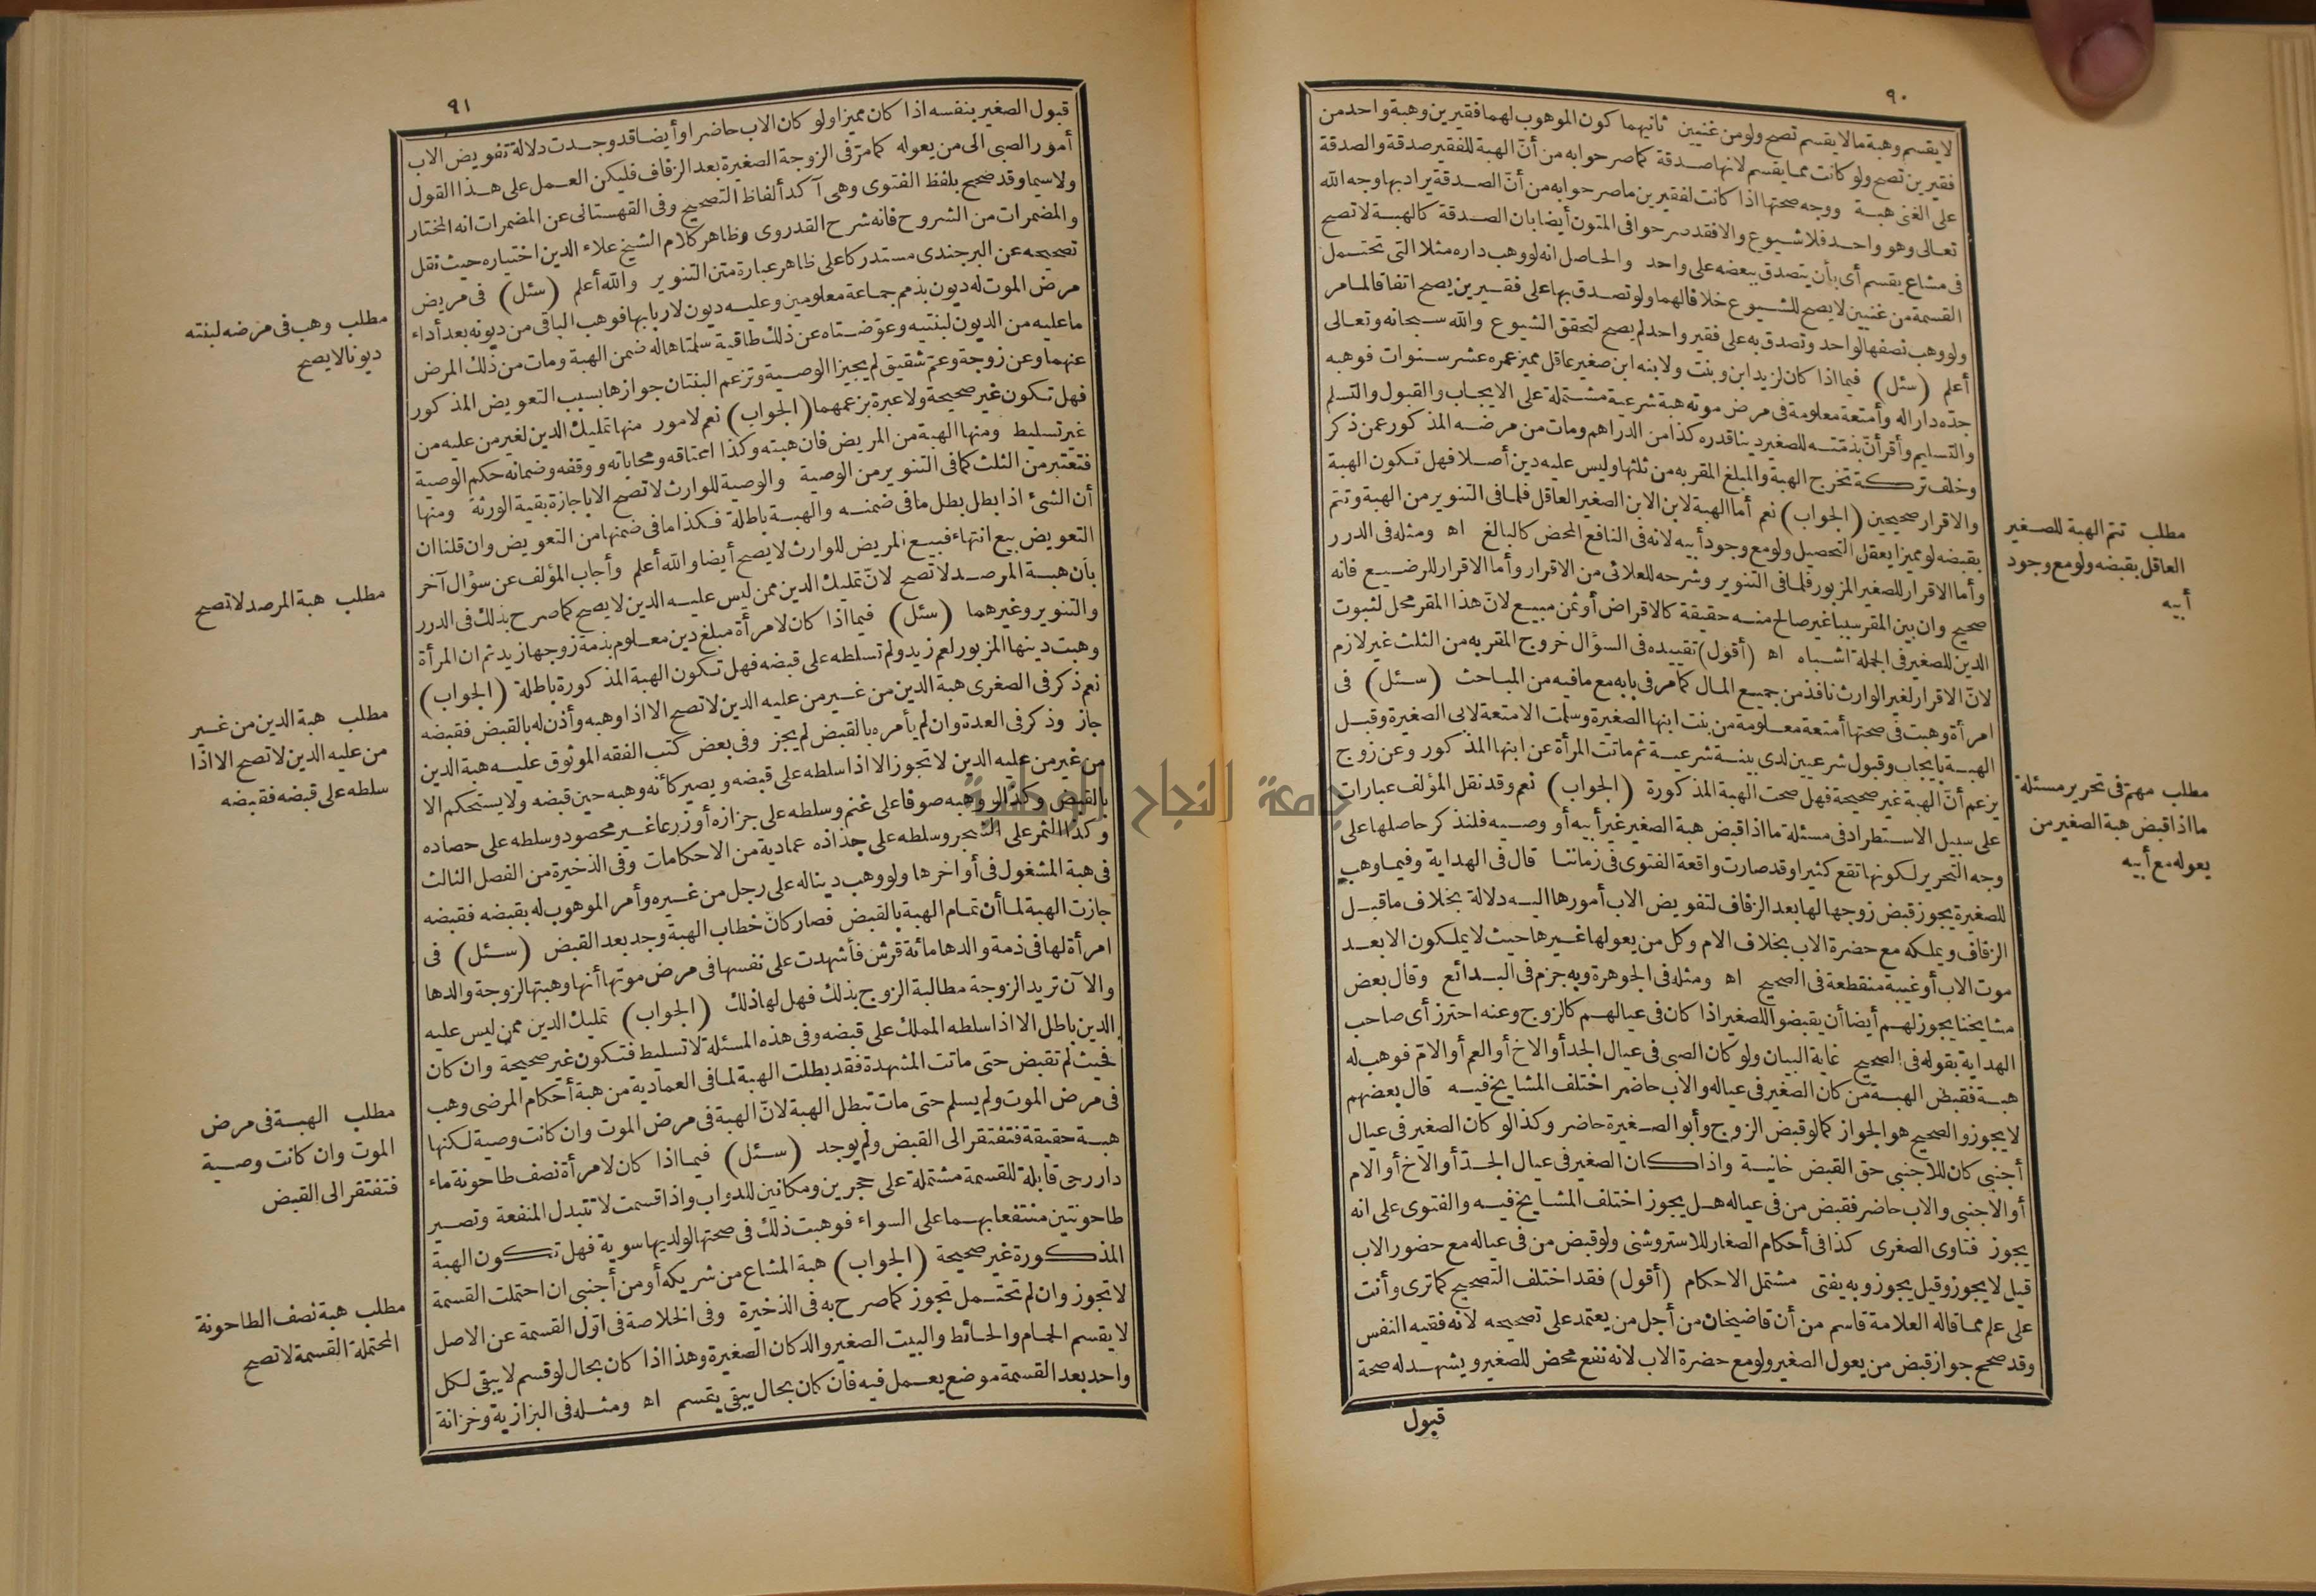 ٩٠
لا يقسم وهبة ما لا يقسم تصح ولو من غنيين ثانيهما كون الموهوب لهما فقيرين وهبة واحد من
فقيرين تصح ولو كانت مما يقسم لانها صدقة كما صرحوا به من أنّ الهبة للفقير صدقة والصدقة
على الغنى هبة ووجه صحتها اذا كانت لفقيرين ما صرحوا به من أنّ الصدقة يراد بها وجه الله
تعالى وهو واحد فلا شيوع والا فقد صرحوا فى المتون أيضا بان الصدقة كالهبة لا تصح
فى مشاع يقسم أى بأن يتصدق ببعضه على واحد والحاصل انه لو وهب داره مثلا التى تحتمل
القسمة من غنيين لا يصح للشيوع خلافا لهما ولو تصدق بها على فقيرين يصح اتفاقا لما مر
ولو وهب نصفها لواحد وتصدق به على فقير واحد لم يصح لتحقق الشيوع والله سبحانه وتعالى
أعلم (سئل) فيما اذا كان لزيد ابن وبنت ولابنه ابن صغير عاقل مميز عمره عشر سنوات فوهبه
جدّه دارا له وأمتعة معلومة فى مرض موته هبة شرعية مشتملة على الايجاب والقبول والتسلم
والتسليم وأقر أنّ بذمّته للصغير دينا قدره كذا من الدراهم ومات من مرضه المذكور عمن ذكر
وخلف تركة تخرج الهبة والمبلغ المقر به من ثلثها وليس عليه دين أصلا فهل تكون الهبة
والاقرار صحيحين (الجواب) نعم أما الهبة لابن الابن الصغير العاقل فلما فى التنوير من الهبة وتتم
بقبضه لو مميزا يعقل التحصيل ولو مع وجود أبيه لانه فى النافع المحض كالبالغ اه ومثله فى الدرر
وأما الاقرار للصغير المزبور فلما فى التنوير وشرحه للعلائى من الاقرار وأما الاقرار للرضيع فانه
صحيح وان بين المقر سببا غير صالح منه حقيقة كالاقراض أو ثمن مبيع لانّ هذا المقر محل لثبوت
الدين للصغير فى الجملة اشباه اه (أقول) تقييده فى السؤال خروج المقر به من الثلث غير لازم
لانّ الاقرار لغير الوارث نافذ من جميع المال كما مر فى بابه مع ما فيه من المباحث (سئل) فى
امرأة وهبت فى صحتها أمتعة معلومة من بنت ابنها الصغيرة وسلمت الامتعة لابى الصغيرة وقبل
الهبة بايجاب وقبول شرعيين لدى بينة شرعية ثم ماتت المرأة عن ابنها المذكور وعن زوج
يزعم أنّ الهبة غير صحيحة فهل صحت الهبة المذكورة (الجواب) نعم وقد نقل المؤلف عبارات
على سبيل الاستطراد فى مسئلة ما اذا قبض هبة الصغير غير أبيه أو وصيه فلنذكر حاصلها على
وجه التحرير لكونها تقع كثيرا وقد صارت واقعة الفتوى فى زماننا قال فى الهداية وفيما وهب
للصغيرة يجوز قبض زوجها لها بعد الزفاف لتفويض الاب أمورها اليه دلالة بخلاف ما قبل
الزفاف ويملكه مع حضرة الاب بخلاف الام وكل من يعولها غيرها حيث لا يملكون الا بعد
موت الاب أو غيبة منقطعة فى الصحيح اه ومثله فى الجوهرة وبه جزم فى البدائع وقال بعض
مشايخنا يجوز لهم أيضا أن يقبضوا للصغير اذا كان فى عيالهم كالزوج وعنه احترز أى صاحب
الهداية بقوله فى الصحيح غاية البيان ولو كان الصبى فى عيال الجد أو الاخ أو العم أو الامّ فوهب له
هبة فقبض الهبة من كان الصغير فى عياله والاب حاضر اختلف المشايخ فيه قال بعضهم
لا يجوز والصحيح هو الجواز كما لو قبض الزوج وأبو الصغيرة حاضر وكذا لو كان الصغير فى عيال
أجنبى كان للاجنبى حق القبض خانية واذا كان الصغير فى عيال الجدّ أو الاخ أو الام
أو الاجنبى والاب حاضر فقبض من فى عياله هل يجوز اختلف المشايخ فيه والفتوى على انه
يجوز فتاوى الصغرى كذا فى أحكام الصغار للاستروشنى ولو قبض من فى عياله مع حضور الاب
قيل لا يجوز وقيل يجوز وبه يفتى مشتمل الاحكام (أقول) فقد اختلف التصحيح كما ترى وأنت
على علم مما قاله العلامة قاسم من أن قاضيخان من أجل من يعتمد على تصحيحه لانه فقيه النفس
وقد صحح جواز قبض من يعول الصغير ولو مع حضرة الاب لانه نفع محض للصغير ويشهد له صحة
قبول
مطلب تتم الهبة للصغير
العاقل بقبضه ولو مع وجود
أبيه
مطلب مهم فى تحرير مسئلة
ما اذا قبض هبة الصغير من
يعوله مع أبيه
٩١
قبول الصغير بنفسه اذا كان مميزا ولو كان الاب حاضرا وأيضا قد وجدت دلالة تفويض الاب
أمور الصبى الى من يعوله كما مرّ فى الزوجة الصغيرة بعد الزفاف فليكن العمل على هذا القول
ولا سيما وقد صحح بلفظ الفتوى وهى آكد ألفاظ التصحيح وفى القهستانى عن المضمرات انه المختار
والمضمرات من الشروح فانه شرح القدورى وظاهر كلام الشيخ علاء الدين اختياره حيث نقل
تصحيحه عن البرجندى مستدركا على ظاهر عبارة متن التنوير والله أعلم (سئل) فى مريض
مرض الموت له ديون بذمم جماعة معلومين وعليه ديون لاربابها فوهب الباقى من ديونه بعد أداء
ما عليه من الديون لبنتيه وعوّضتاه عن ذلك طاقية سلمتاها له ضمن الهبة ومات من ذلك المرض
عنهما وعن زوجة وعم شقيق لم يجيزا الوصية وتزعم البنتان جوازها بسبب التعويض المذكور
فهل تكون غير صحيحة ولا عبرة بزعمهما (الجواب) نعم لامور منها تمليك الدين لغير من عليه من
غير تسليط ومنها الهبة من المريض فان هبته وكذا اعتاقه ومحاباته ووقفه وضمانه حكم الوصية
فتعتبر من الثلث كما فى التنوير من الوصية والوصية للوارث لا تصح الا باجازة بقية الورثة ومنها
أن الشئ اذا بطل بطل ما فى ضمنه والهبة باطلة فكذا ما فى ضمنها من التعويض وان قلنا ان
التعويض بيع انتهاء فبيع المريض للوارث لا يصح أيضا والله أعلم وأجاب المؤلف عن سؤال آخر
بأن هبة المرصد لا تصح لانّ تمليك الدين ممن ليس عليه الدين لا يصح كما صرح بذلك فى الدرر
والتنوير وغيرهما (سئل) فيما اذا كان لامرأة مبلغ دين معلوم بذمة زوجها زيد ثم ان المرأة
وهبت دينها المزبور لعم زيد ولم تسلطه على قبضه فهل تكون الهبة المذكورة باطلة (الجواب)
نعم ذكر فى الصغرى هبة الدين من غير من عليه الدين لا تصح الا اذا وهبه وأذن له بالقبض فقبضه
جاز وذكر فى العدة وان لم يأمره بالقبض لم يجز وفى بعض كتب الفقه الموثوق عليه هبة الدين
من غير من عليه الدين لا تجوز الا اذا سلطه على قبضه ويصير كأنه وهبه حين قبضه ولا يستحكم الا
بالقبض وكذا لو وهبه صوفا على غنم وسلطه على جزازه أو زرعا غير محصود وسلطه على حصاده
وكذا الثمر على الشجر وسلطه على جذاذه عمادية من الاحكامات وفى الذخيرة من الفصل الثالث
فى هبة المشغول فى أواخرها ولو وهب دينا له على رجل من غيره وأمر الموهوب له بقبضه فقبضه
جازت الهبة لما أن تمام الهبة بالقبض فصار كانّ خطاب الهبة وجد بعد القبض (سئل) فى
امرأة لها فى ذمة والدها مائة قرش فأشهدت على نفسها فى مرض موتها أنها وهبتها لزوجة والدها
والآن تريد الزوجة مطالبة الزوج بذلك فهل لها ذلك (الجواب) تمليك الدين ممن ليس عليه
الدين باطل الا اذا سلطه المملك على قبضه وفى هذه المسئلة لا تسليط فتكون غير صحيحة وان كان
فحيث لم تقبض حتى ماتت المشهدة فقد بطلت الهبة لما فى العمادية من هبة أحكام المرضى وهب
فى مرض الموت ولم يسلم حتى مات تبطل الهبة لانّ الهبة فى مرض الموت وان كانت وصية لكنها
هبة حقيقة فتفتقر الى القبض ولم يوجد (سئل) فيما اذا كان لامرأة نصف طاحونة ماء
دار رحى قابلة للقسمة مشتملة على حجرين ومكانين للدواب واذا قسمت لا تتبدل المنفعة وتصير
طاحونتين منتفعا بهما على السواء فوهبت ذلك فى صحتها لولديها سوية فهل تكون الهبة
المذكورة غير صحيحة (الجواب) هبة المشاع من شريكه أو من أجنبى ان احتملت القسمة
لا تجوز وان لم تحتمل تجوز كما صرح به فى الذخيرة وفى الخلاصة فى اوّل القسمة عن الاصل
لا يقسم الحمام والحائط والبيت الصغير والدكان الصغيرة وهذا اذا كان بحال لو قسم لا يبقى لكل
واحد بعد القسمة موضع يعمل فيه فان كان بحال يبقى يقسم اه ومثله فى البزازية وخزانة
مطلب وهب فى مرضه لبنته
ديونا لا يصح
مطلب هبة المرصد لا تصح
مطلب هبة الدين من غير
من عليه الدين لا تصح الا اذا
سلطه على قبضه فقبضه
مطلب الهبة فى مرض
الموت وان كانت وصية
فتفتقر الى القبض
مطلب هبة نصف الطاحونة
المحتملة القسمة لا تصح
جامعة النجاح الوطنية